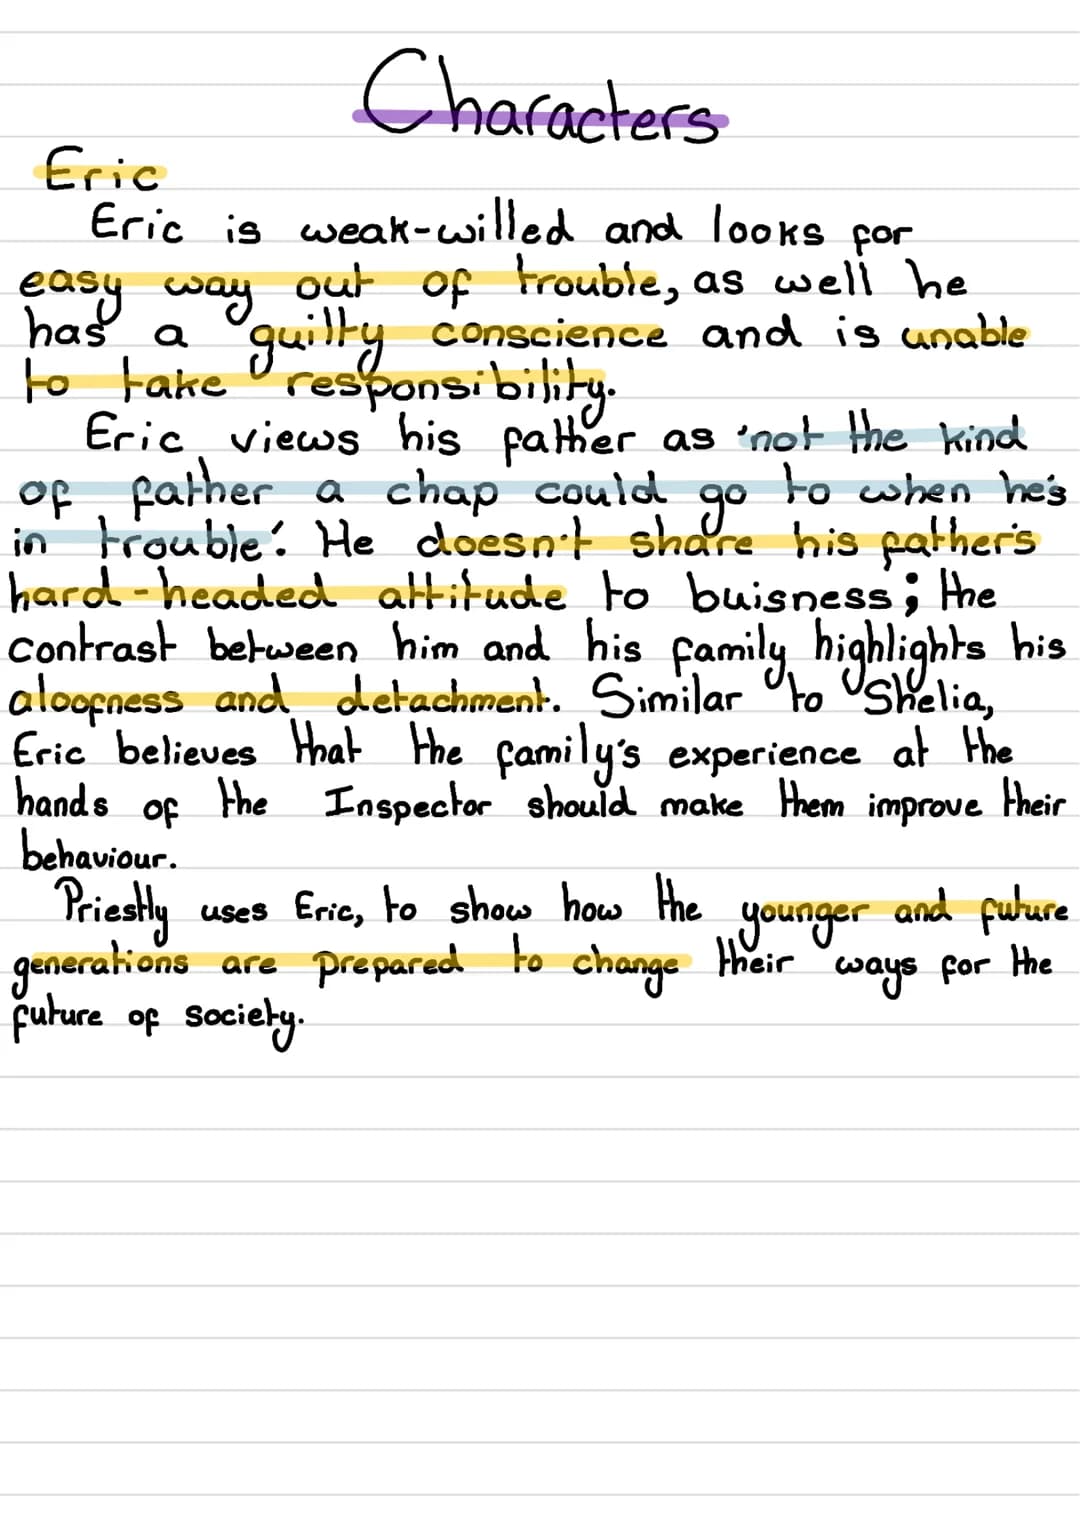 Characters
Eric
Eric is weak-willed and looks for
easy way out of trouble, as well he
has a guilty conscience and is unable
to take responsibility.
Eric views his father as 'not the kind
of father a chap could go to when he's
in trouble'. He doesn't share his father's
hard-headed attitude to buisness; the
contrast between him and his family highlights his
aloofness and detachment. Similar to Shelia,
Eric believes that the family's experience at the
hands of the Inspector should make them improve their
behaviour.
Priestly uses Eric, to show how the younger and future
generations are prepared to change their ways for the
future of society.